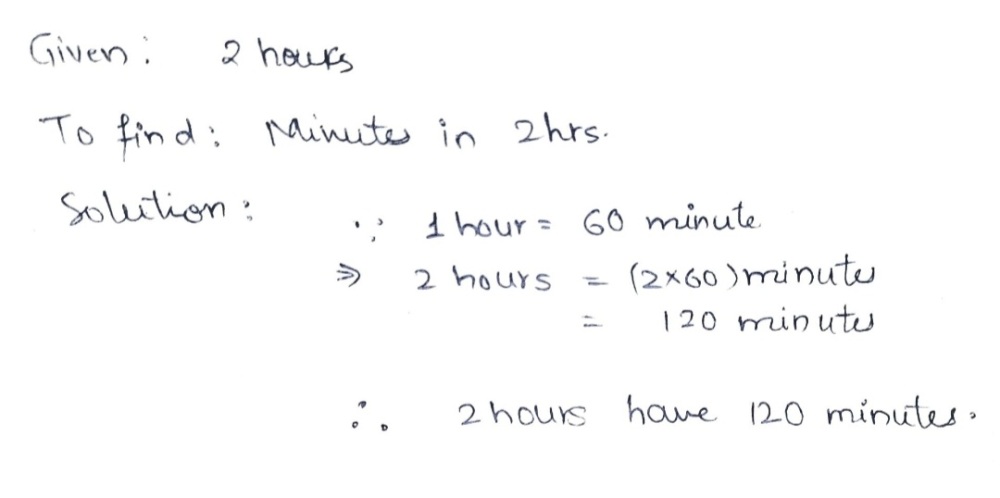 Given: 2 hours
To find: Minutes in 2hrs.
Solution:
∵ 1 hour = 60 minute
⇒ 2 hours = (2×60) minutes
= 120 minutes
∴ 2 hours have 120 minutes.